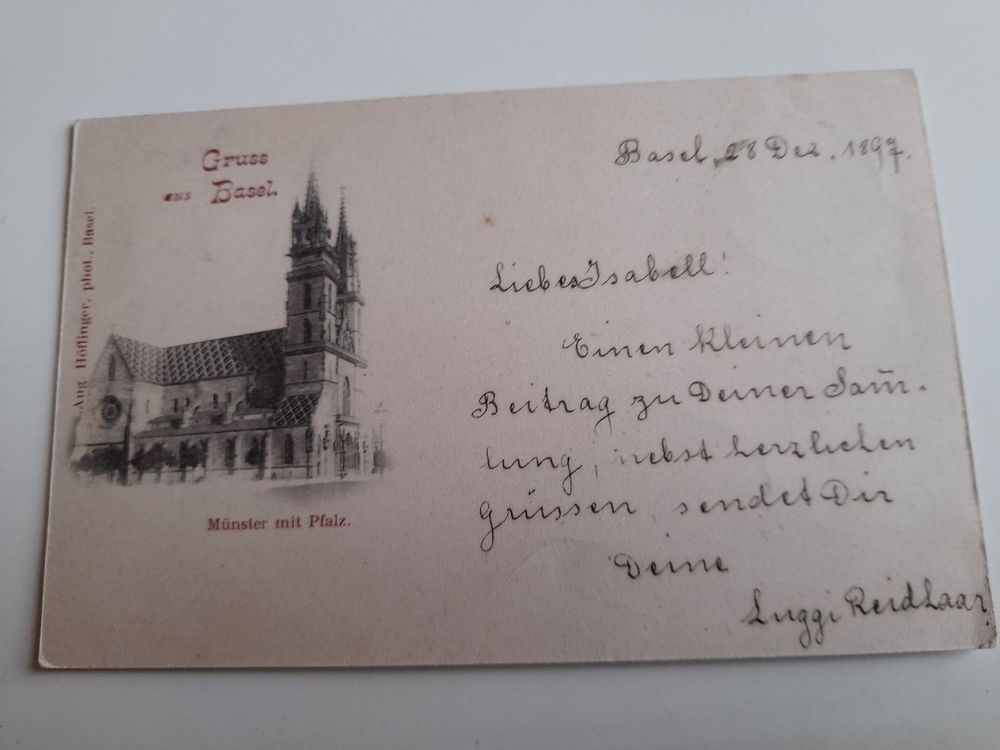 Gruss
aus Basel.
Aug. Höflinger, phot., Basel.
Münster mit Pfalz.
Basel, 28 Dez. 1897.
Liebes Isabell!
Einen kleinen
Beitrag zu Deiner Sam̄-
lung, nebst herzlichen
Grüssen, sendet Dir
Deine
Luggi Reidhaar